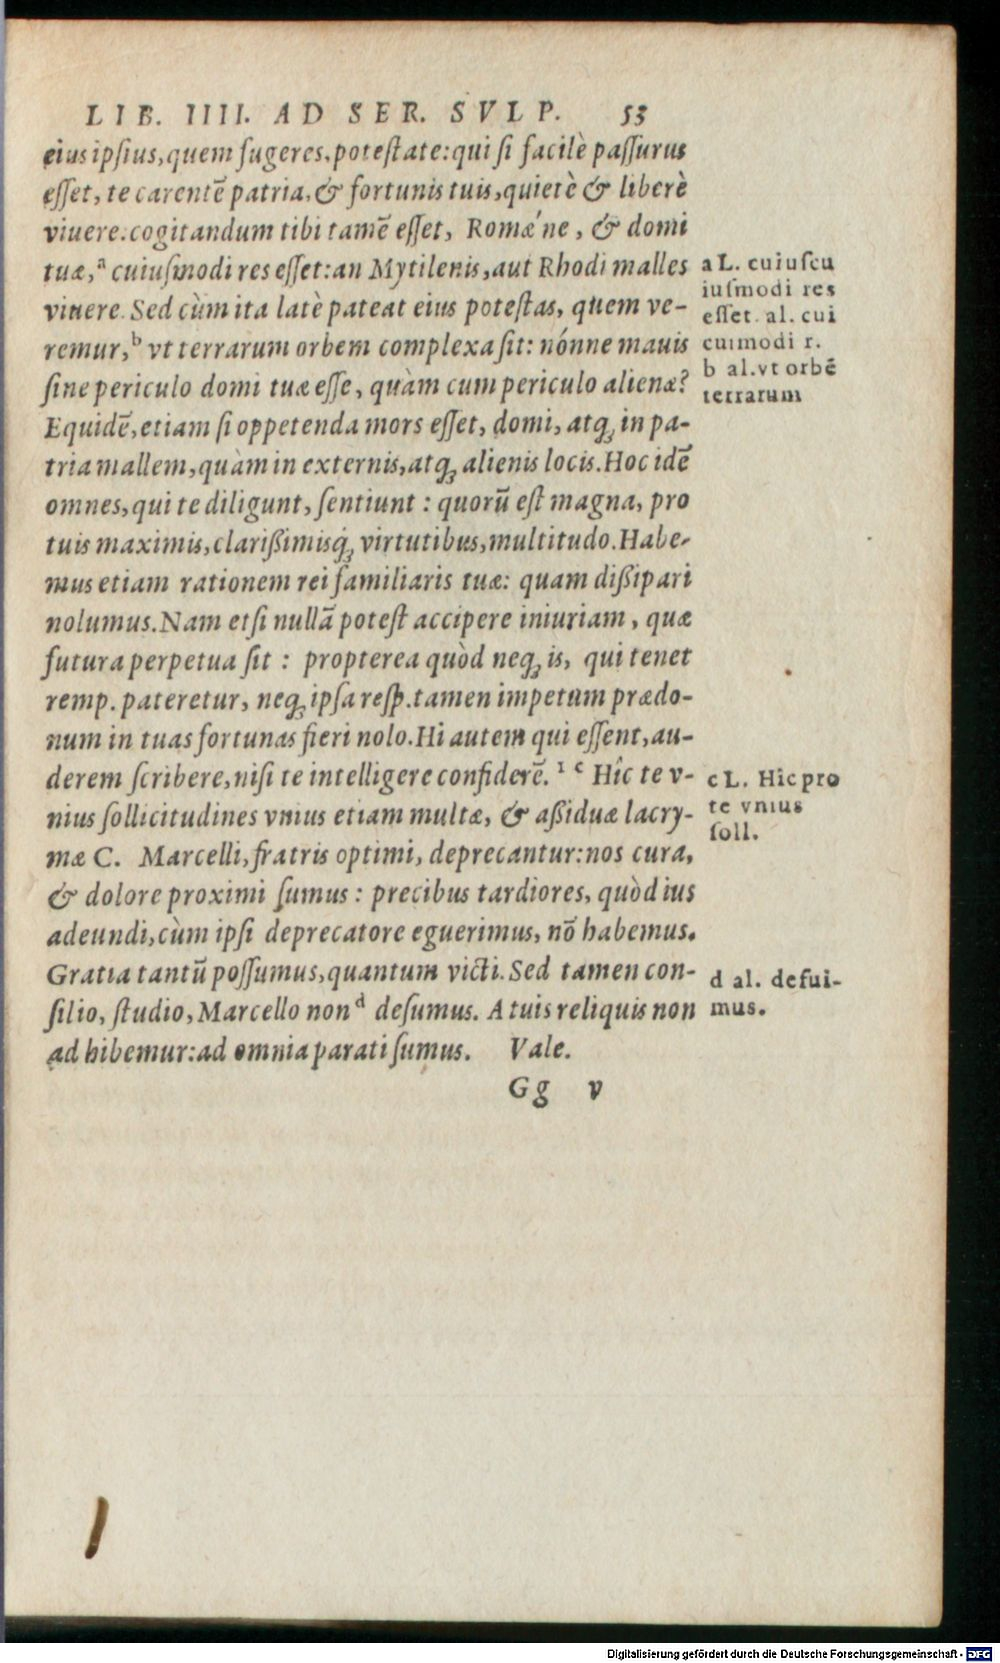 LIB. IIII. AD SER. SVLP. 53
eius ipsius, quem fugeres, potestate: qui si facilè passurus
esset, te carentē patria, & fortunis tuis, quietè & liberè
viuere: cogitandum tibi tamē esset, Romæ´ne, & domi
tuæ,ᵃ cuiusmodi res esset: an Mytilenis, aut Rhodi malles
viuere. Sed cùm ita latè pateat eius potestas, quem ve-
remur,ᵇ vt terrarum orbem complexa sit: nónne mauis
sine periculo domi tuæ esse, quàm cum periculo alienæ?
Equidē, etiam si oppetenda mors esset, domi, atq; in pa-
tria mallem, quàm in externis, atq; alienis locis. Hoc idē
omnes, qui te diligunt, sentiunt: quorū est magna, pro
tuis maximis, clarißimisq́; virtutibus, multitudo. Habe-
mus etiam rationem rei familiaris tuæ: quam dißipari
nolumus. Nam etsi nullā potest accipere iniuriam, quæ
futura perpetua sit: propterea quòd neq; is, qui tenet
remp. pateretur, neq; ipsa resp. tamen impetum prædo-
num in tuas fortunas fieri nolo. Hi autem qui essent, au-
derem scribere, nisi te intelligere confiderē. ¹ ᶜ Hîc te v-
nius sollicitudines vnius etiam multæ, & aßiduæ lacry-
mæ C. Marcelli, fratris optimi, deprecantur: nos cura,
& dolore proximi sumus: precibus tardiores, quòd ius
adeundi, cùm ipsi deprecatore eguerimus, nō habemus.
Gratia tantū possumus, quantum victi. Sed tamen con-
silio, studio, Marcello nonᵈ desumus. A tuis reliquis non
adhibemur: ad omnia parati sumus. Vale.
Gg v
a L. cuiuscu
iusmodi res
esset. al. cui
cuimodi r.
b al. vt orbē
terrarum
c L. Hîc pro
te vnius
soll.
d al. defui-
mus.
Digitalisierung gefördert durch die Deutsche Forschungsgemeinschaft - DFG